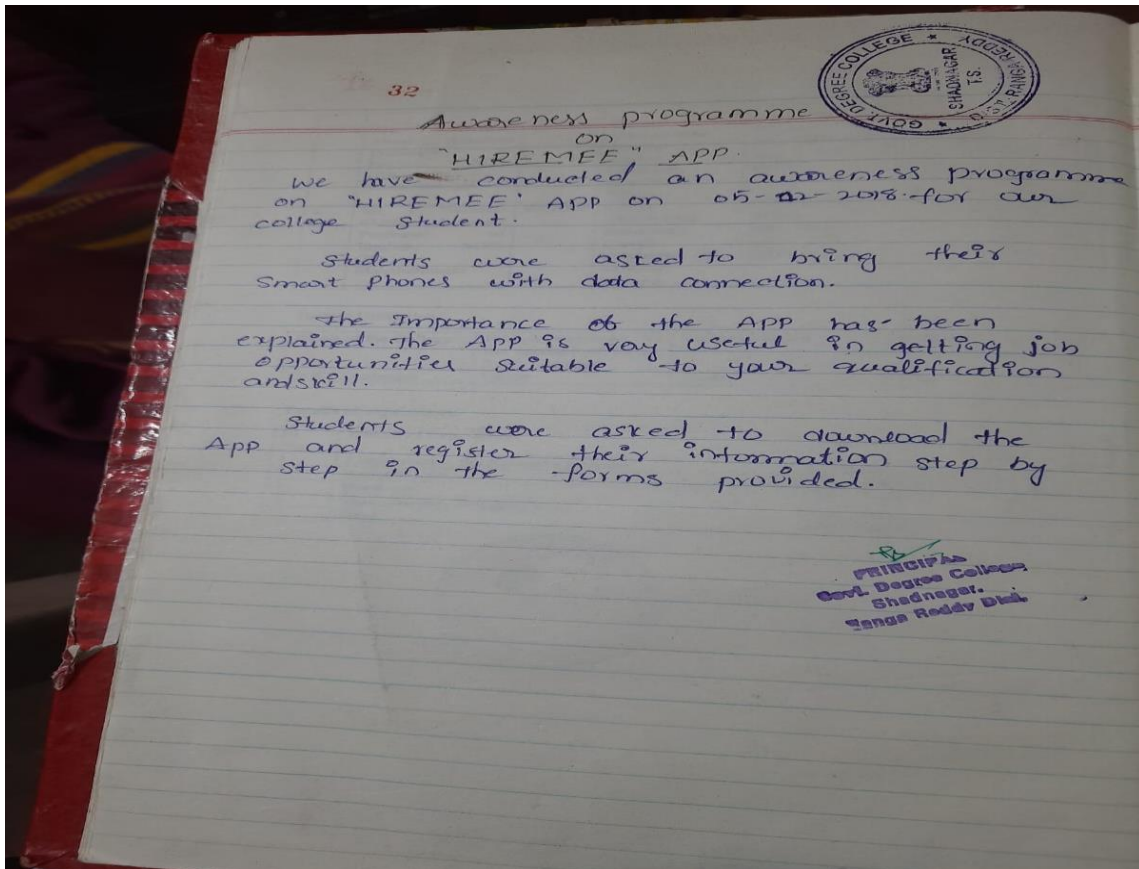 32
GOVT DEGREE COLLEGE * DIST. RANGA REDDY *
SHADNAGAR
T.S.
Awareness programme
on
"HIREMEE" APP.
We have conducted an awareness programme
on "HIREMEE" APP on 05-02-2018 for our
college student.
Students were asked to bring their
Smart Phones with data connection.
The Importance of the APP has been
explained. The App is very useful in getting job
opportunities suitable to your qualification
and skill.
Students were asked to download the
App and register their information step by
step in the forms provided.
PRINCIPAL
Govt. Degree College
Shadnagar.
Ranga Reddy Dist.